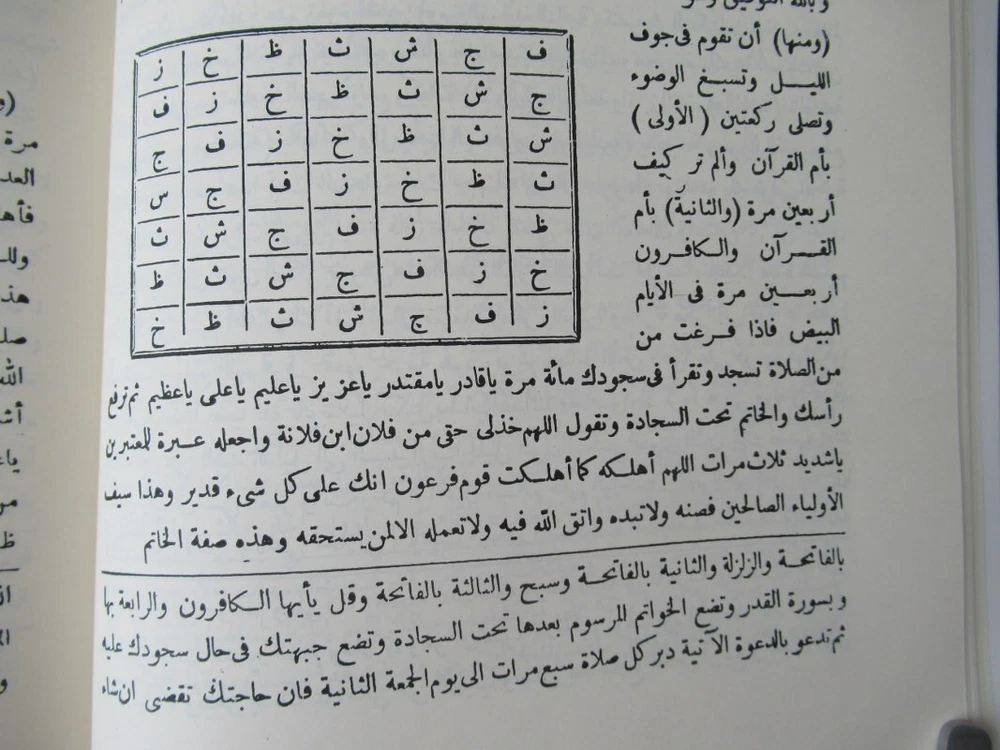 وبالله التوفيق
(ومنها) أن تقوم فى جوف
الليل وتسبغ الوضوء
وتصلى ركعتين (الأولى)
بأم القرآن وألم تر كيف
أربعين مرة (والثانية) بأم
القرآن والكافرون
أربعين مرة فى الأيام
البيض فاذا فرغت من
ف ج ش ث ظ خ ز
ج ش ث ظ خ ز ف
ش ث ظ خ ز ف ج
ث ظ خ ز ف ج س
ظ خ ز ف ج ش ث
خ ز ف ج ش ث ظ
ز ف ج ش ث ظ خ
من الصلاة تسجد وتقرأ فى سجودك مائة مرة ياقادر يامقتدر ياعزيز ياعليم ياعلى ياعظيم ثم ترفع
رأسك والخاتم تحت السجادة وتقول اللهم خذلى حقى من فلان ابن فلانة واجعله عبرة للمعتبرين
ياشديد ثلاث مرات اللهم أهلكه كما أهلكت قوم فرعون انك على كل شىء قدير وهذا سيف
الأولياء الصالحين فصنه ولا تبده واتق الله فيه ولا تعمله الا لمن يستحقه وهذه صفة الخاتم
بالفاتحة والزلزلة والثانية بالفاتحة وسبح والثالثة بالفاتحة وقل يأيها الكافرون والرابعة بها
وبسورة القدر وتضع الخواتم المرسوم بعدها تحت السجادة وتضع جبهتك فى حال سجودك عليه
ثم تدعو بالدعوة الآتية دبر كل صلاة سبع مرات الى يوم الجمعة الثانية فان حاجتك تقضى ان شاء